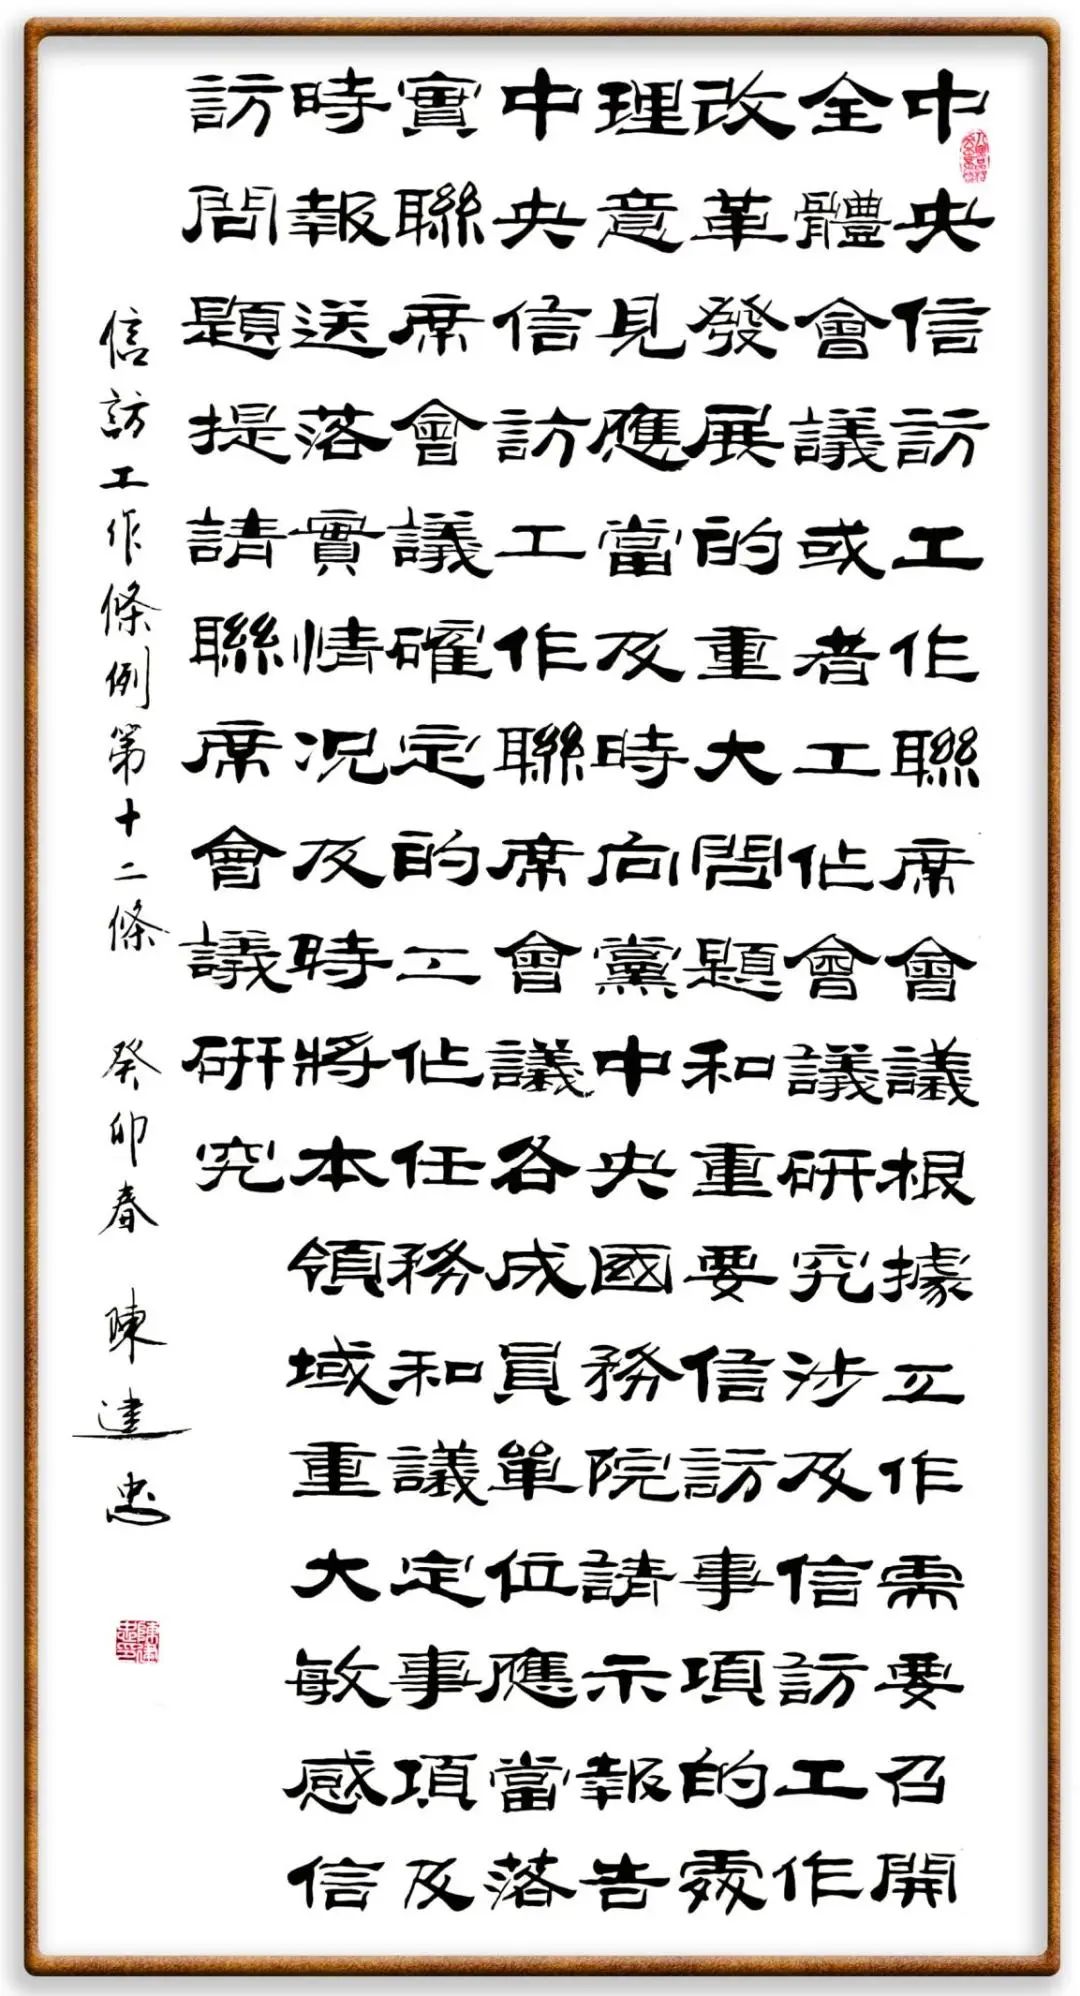 中央信訪工作聯席會議根據工作需要召開
全體會議或者工作會議研究涉及信訪工作
改革發展的重大問題和重要信訪事項的處
理意見應當及時向黨中央國務院請示報告
中央信訪工作聯席會議各成員單位應當落
實聯席會議確定的工作任務和議定事項及
時報送落實情況及時將本領域重大敏感信
訪問題提請聯席會議研究
信訪工作條例第十二條 癸卯春 陳建忠
陳建忠印